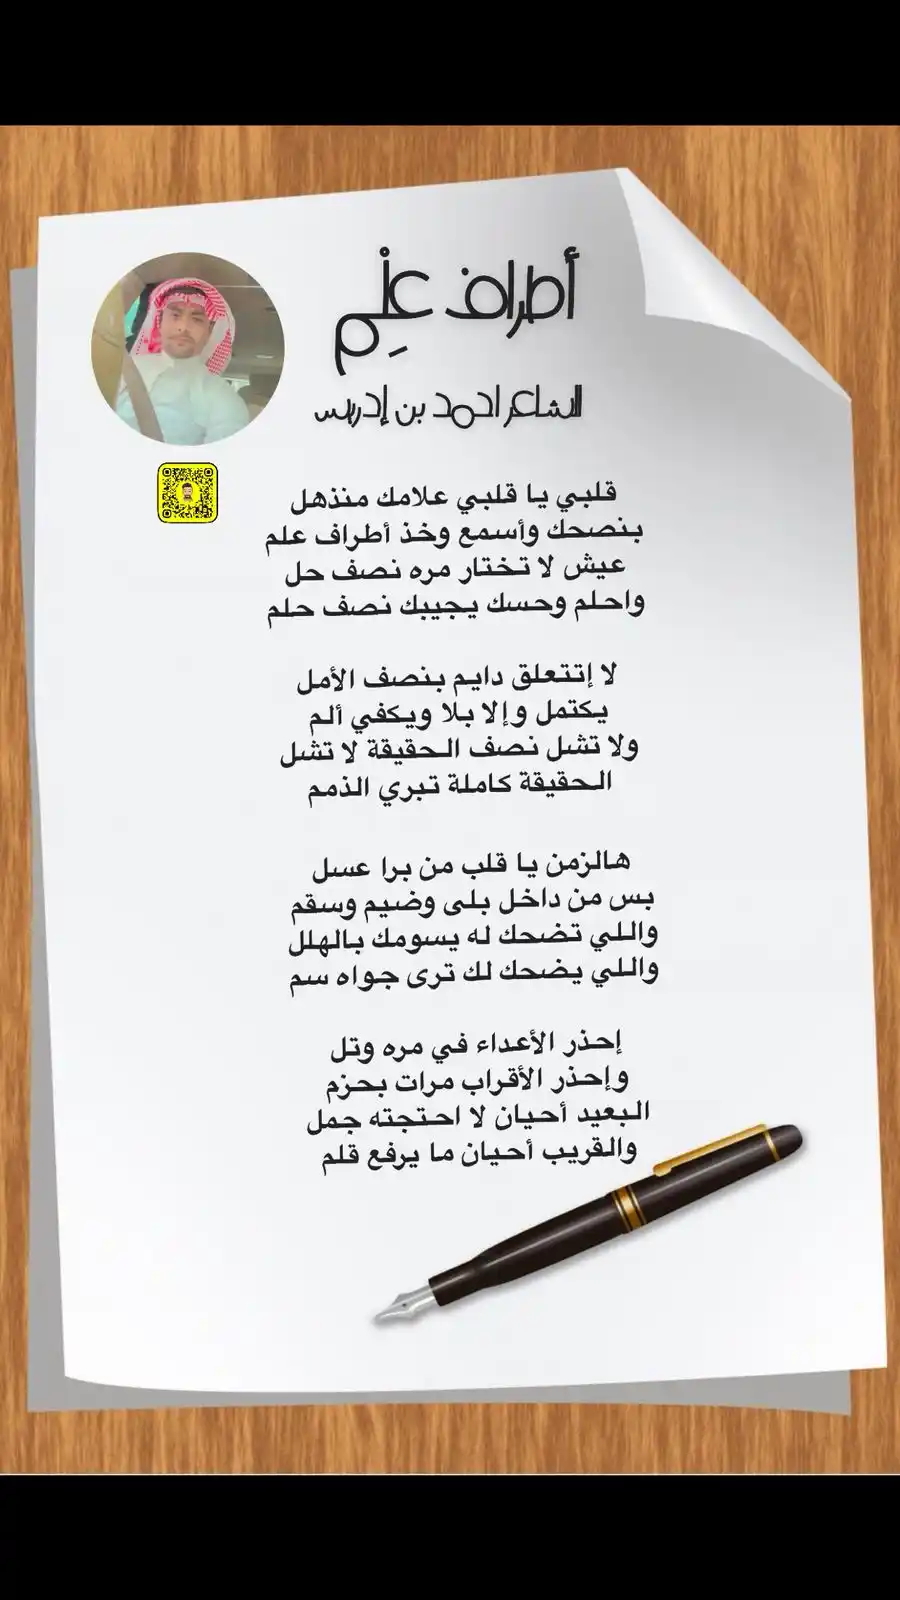 أطراف عِلْم
الشاعر احمد بن إدريس
قلبي يا قلبي علامك منذهل
بنصحك وأسمع وخذ أطراف علم
عيش لا تختار مره نصف حل
واحلم وحسك يجيبك نصف حلم
لا إتتعلق دايم بنصف الأمل
يكتمل وإلا بلا ويكفي ألم
ولا تشل نصف الحقيقة لا تشل
الحقيقة كاملة تبري الذمم
هالزمن يا قلب من برا عسل
بس من داخل بلى وضيم وسقم
واللي تضحك له يسومك بالهلل
واللي يضحك لك ترى جواه سم
إحذر الأعداء في مره وتل
وإحذر الأقراب مرات بحزم
البعيد أحيان لا احتجته جمل
والقريب أحيان ما يرفع قلم